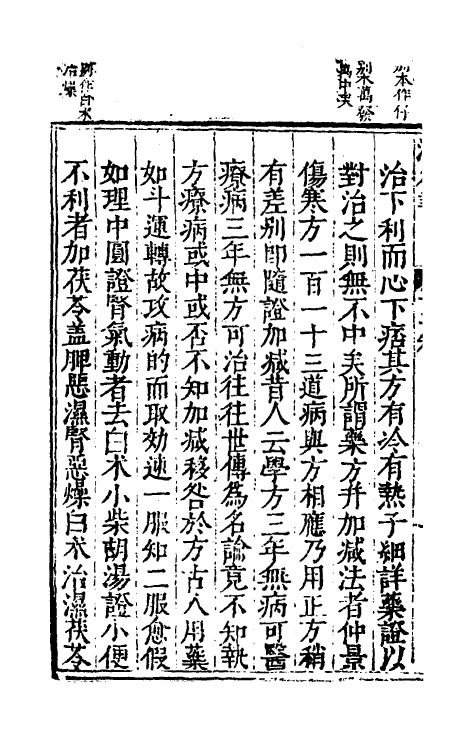 別本作仔
別本萬發
萬中矣
別作白朮
治燥
治下利而心下痞其方有冷有熱子細詳藥證以
對治之則無不中矣所謂藥方幷加減法者仲景
傷寒方一百一十三道病與方相應乃用正方稍
有差別卽隨證加減昔人云學方三年無病可醫
療病三年無方可治往往世傳爲名論竟不知執
方療病或中或否不知加減移咎於方古人用藥
如斗運轉故攻病的而取効速一服知二服愈假
如理中圓證腎氣動者去白朮小柴胡湯證小便
不利者加茯苓蓋脾惡濕腎惡燥白朮治濕茯苓